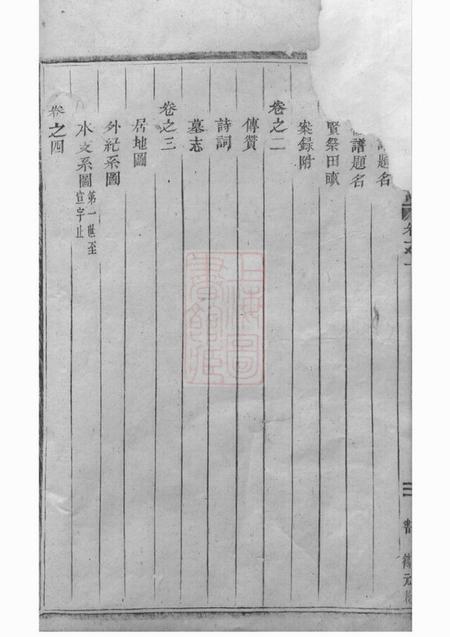 題名
譜題名
賢祭田畝
案録附
卷之二
傳贊
詩詞
墓志
卷之三
居地圖
外紀系圖
水支系圖 第一世至宣字止
卷之四
上海圖書館藏
三